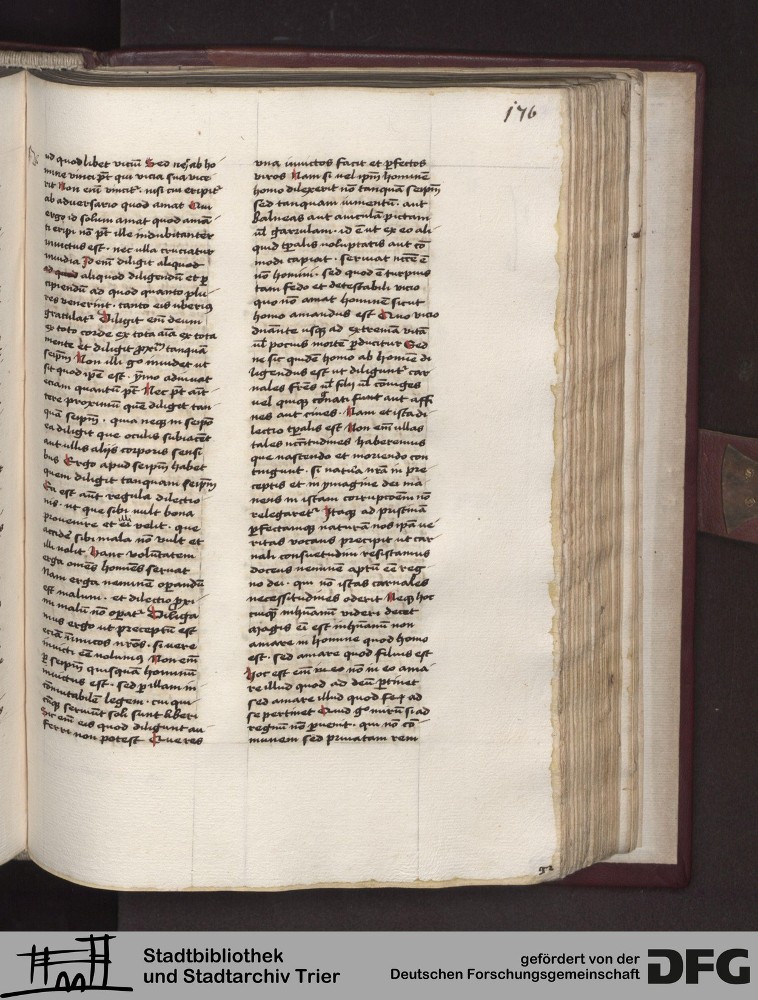 176
ad quodlibet viciū Sed neq; ab ho
mine vinci pt qui vicia sua vice
rit Non em̄ vincit᷑ nisi cui eripit᷑
ab adversario quod amat Qui
ergo id solum amat quod amā
ti eripi nō pt ille indubitanter
invictus est · nec ulla cruciatur
invidia Id em̄ diligit aliquod
aliquod diligendū et p
cipiendū ad quod quanto plu
res venerint · tanto eis uberius
gratulat᷑ Diligit em̄ deum
ex toto corde ex tota aīa ex tota
mente et diligit proxīm tanquā
seipm̄ Non illi g̊ invidet ut
sit quod ipē est · ymo adiuvat
eciam quantū pt Nec pt āit
tere proximū quē diligit tan
quā seipm̄ · quia neq; in seipō
ea diligit que oculis subiacēt
aut ullis alijs corporis sensi
bus Ergo apud seipm̄ habet
quem diligit tanquam seipm̄
Ea est aūt regula dilectio
nis · ut que sibi vult bona
provenire et ei velit · que
accidē sibi mala nō vult et
illi nolit Hanc volūtatem
erga om̄es homīes servat
Nam erga neminē operandū
est malum · et dilectio proxi
mi malū nō operat᷑ Diliga
mus ergo ut preceptū est
eciā inimicos nr̄os · si vere
invicti eē volumus Non em̄
p seipm̄ quisquā hominū
invictus est · sed p illam in
cōmutabilē legem · cui qui
cūq; serviūt soli sunt liberi
Sic em̄ eis quod diligunt au
ferri non potest Que res
una invictos facit et pfectos
viros Nam si vel ipm̄ hominē
homo dilexerit nō tanquā seipm̄
sed tanquam iumentū · aut
balneas aut aviculā pictam
ul̄ garrulam · id ē ut ex eo ali
quid tp̄alis voluptatis aut cō
modi capiat · serviat nccē ē
nō homini · sed quod ē turpius
tam fedo et detestabili vicio
quo nō amat hominē sicut
homo amandus est Quo vicio
dn̄ante usq; ad extremā vitā
ul̄ pocius mortē pducitur Sed
ne sic quidē homo ab homīe di
ligendus est ut diligunt᷑ car
nales fr̄es ul̄ filij ul̄ cōiuges
vel quiq; cognati sunt aut affi
nes aut cives · Nam et ista di
lectio tp̄alis est Non em̄ ullas
tales nccitudines haberemus
que nascendo et moriendo con
tingunt · si natura nr̄a in pre
ceptis et in ymagine dei ma
nens in istam corrupcōem nō
relegaret᷑ Itaq; ad pristinā
pfectamq; naturā nos ipā ve
ritas vocans precipit ut car
nali consuetudini resistamus
docens neminē aptū eē reg
no dei · qui nō istas carnales
necessitudines oderit Neq; hoc
cuiq; inhūanū videri debet
magis ei est inhūanū non
amare in homine quod homo
est · sed amare quod filius est
Hoc est em̄ in eo nō in eo ama
re illud quod ad deū ptinet
sed amare illud quod ad
se pertinet Quid g̊ mirū si ad
regnū nō pvenit · qui nō cō
munem sed privatam rem
Stadtbibliothek
und Stadtarchiv Trier
gefördert von der
Deutschen Forschungsgemeinschaft
DFG